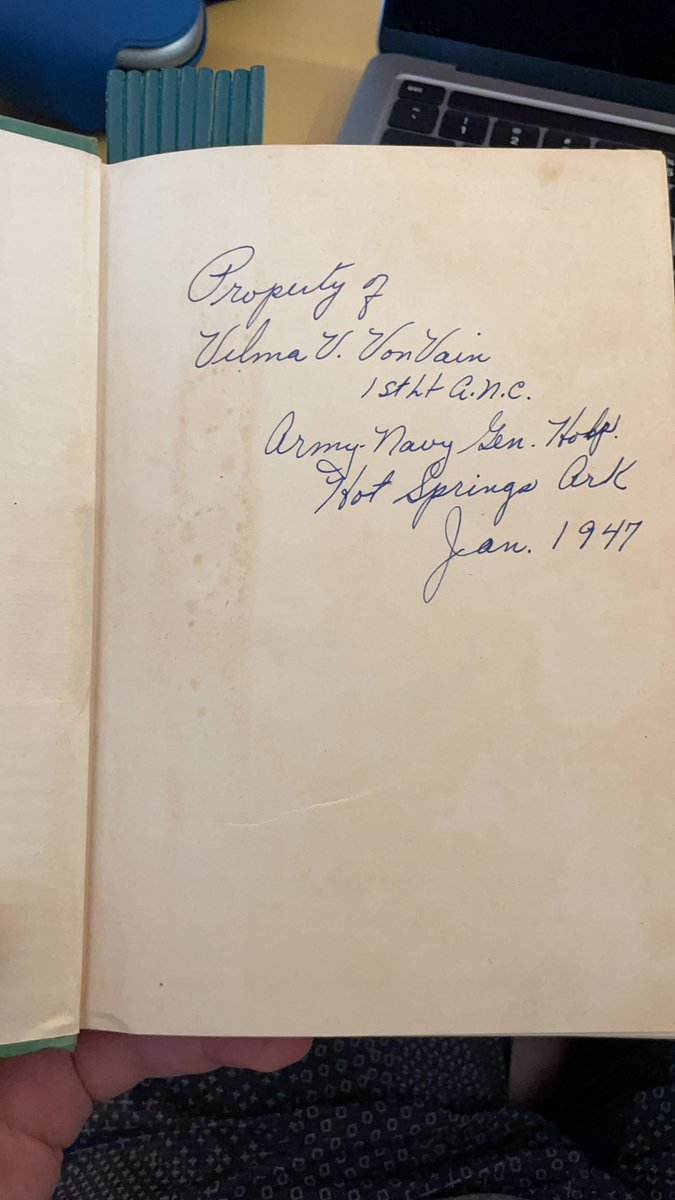 Property of
Velma V. VonVain
1st Lt A.N.C.
Army-Navy Gen. Hosp.
Hot Springs Ark
Jan. 1947